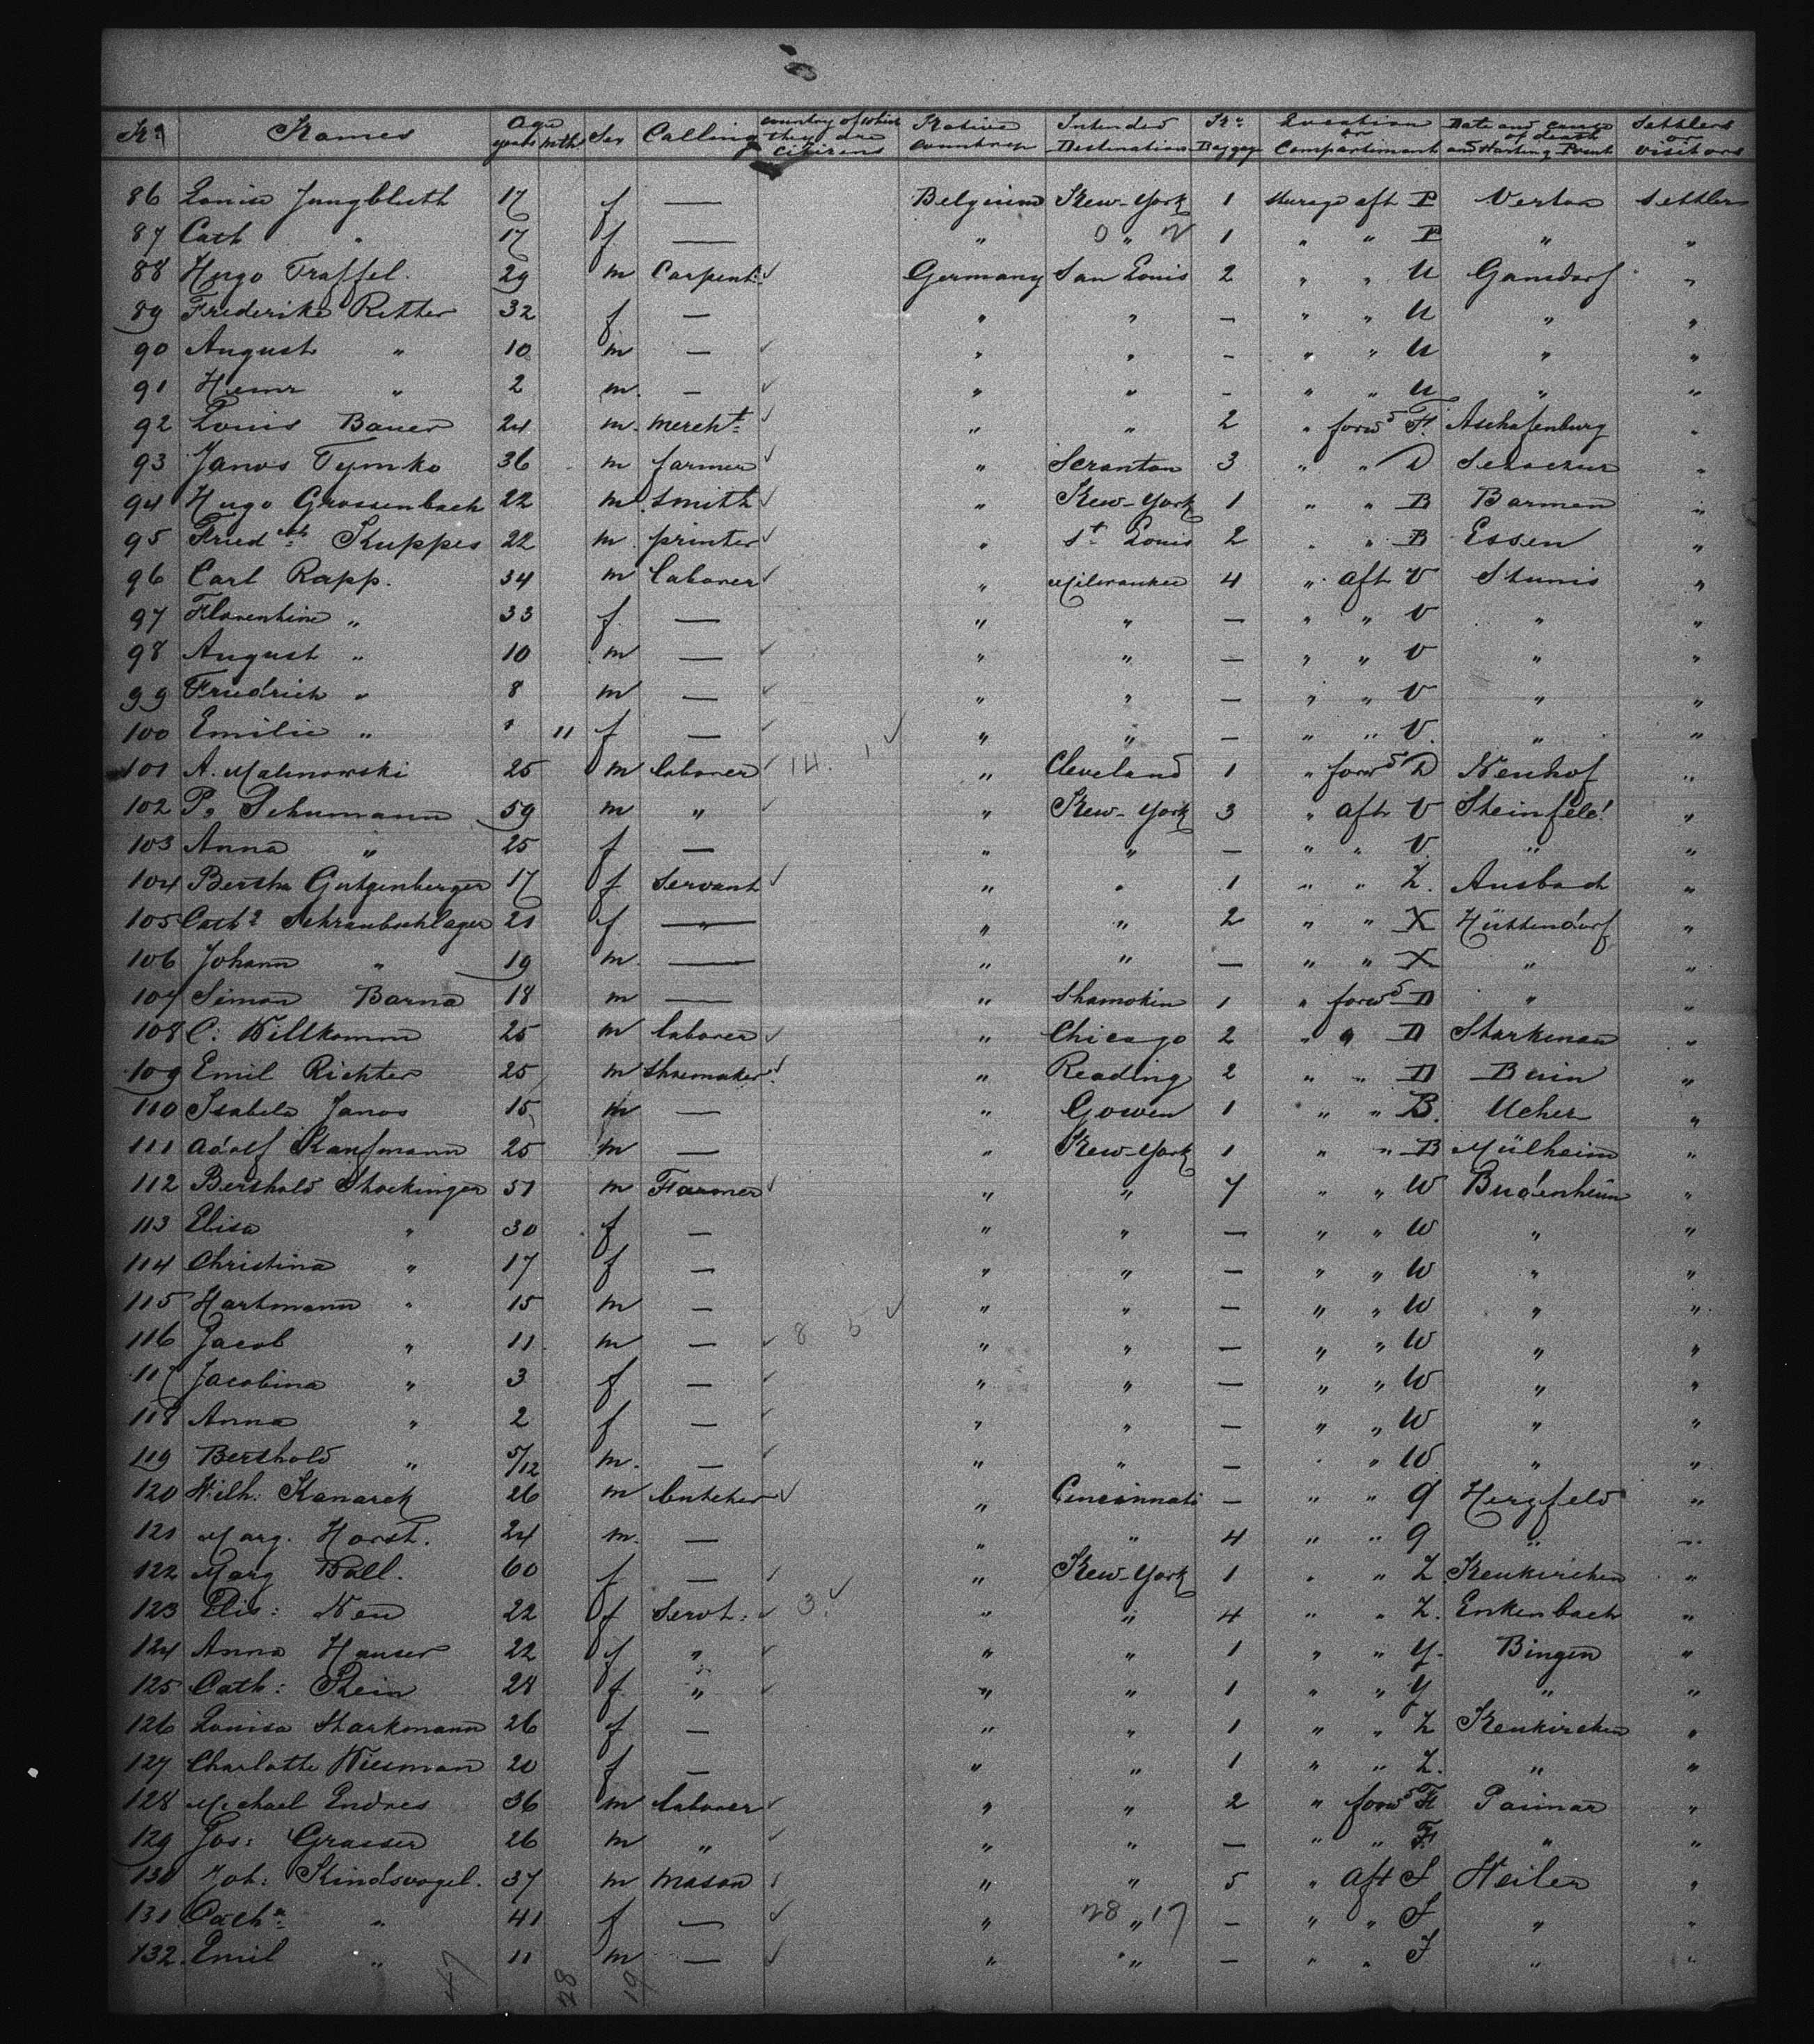 No Names Age years mth Sex Calling Country of which they are citizens Native Country Intended Destination No Baggage Location or Compartiment Date and cause of death and Starting Point Settlers or visitors
86 Louise Jungbluth 17 f — Belgium New-York 1 Sturage aft P Verton Settlers
87 Cath " 17 f — " 0 " 2 1 " " P " "
88 Hugo Traffel. 29 m Carpent. ✓ Germany San Louis 2 " " U Gansdorf "
89 Frederike Ritter 32 f — " " — " " U " "
90 August " 10 m — ✓ " " — " " U " "
91 Henr " 2 m. — ✓ " " — " " U " "
92 Louis Bauer 24 m. Mercht ✓ " " 2 " forwd F. Aschafenburg "
93 Janos Tymko 36 m farmer ✓ " Scranton 3 " " D "
94 Hugo Grossenbach 22 m. Smith ✓ " New-York 1 " " B Barmen "
95 Fried Kuppes 22 m. printer ✓ " St Louis 2 " " B Essen "
96 Carl Rapp. 34 m laborer ✓ " Milwaukee 4 " aft V Stumis "
97 Florentine " 33 f. — " " — " " V " "
98 August " 10 m — ✓ " " — " " V " "
99 Friedrich " 8 m — ✓ " " — " " V " "
100 Emilie " " 11 f — ✓ 1 ✓ " " — " " V. " "
101 A. Malinowski 25 m laborer ✓ 14. " Cleveland 1 " forwd D Neuhof "
102 P. Schumann 59 m " ✓ " New-York 3 " aft V Steinfeld "
103 Anna " 25 f — " " — " " V. " "
104 Bertha Gutgenberger 17 f Servant ✓ " " 1 " " Z. Ansbach "
105 Catha Schraubschlager 21 f —"— " " 2 " " X Hüttendorf "
106 Johann " 19 m. — " " — " " X " "
107 Simon Barna 18 m — " Shamokin 1 " forwd D " "
108 C. Willkomm 25 m laborer ✓ " Chicago 2 " " D Starkenau "
109 Emil Richter 25 m Shoemaker. ✓ " Reading 2 " " D Buin "
110 Isabela Janos 15 m — " Gowen 1 " " B. Ucher "
111 Adolf Kaufmann 25 m — " New-York 1 " " B Mülheim "
112 Berthold Stockinger 51 m Farmer ✓ " " 7 " " W Budenheim "
113 Elisa " 30 f — " " — " " W " "
114 Christina " 17 f — " " — " " W " "
115 Hartmann " 15 m — ✓ " " — " " W " "
116 Jacob " 11. m — ✓ 8 5 " " — " " W " "
117 Jacobina " 3 f — ✓ " " — " " W " "
118 Anna " 2 f — ✓ " " — " " W " "
119 Berthold " 5/12 m. — ✓ " " — " " W " "
120 Wilh. Kanarek 26 m butcher ✓ " Cincinnati — " " q Herzfeld "
121 Marg. Horst. 24 m. — " " 4 " " q " "
122 Marg Ball. 60 f — ✓ " New-York 1 " " Z Neukirchen "
123 Elis: Neu 22 f Servt: ✓ 3. ✓ " " 4 " " Z. Enkenbach "
124 Anna Hauser 22 f " ✓ " " 1 " " Y. Bingen "
125 Cath: Stein 28 f " ✓ " " 1 " " Y " "
126 Louisa Starkmann 26 f — " " 1 " " Z Neukirchen "
127 Charlotte Wiesman 20 f — " " 1 " " Z. " "
128 Michael Endres 36 m laborer ✓ " " 2 " forwd F Paimar "
129 Jos: Graeser 26 m " ✓ " " — " " F " "
130 Joh: Kindsvogel. 37 m Mason ✓ " " 5 " aft S Weiler "
131 Catha " 41 f — ✓ " 28 " 17 — " " S " "
132. Emil " 11 m — ✓ " " — " " S " "
47 28 19